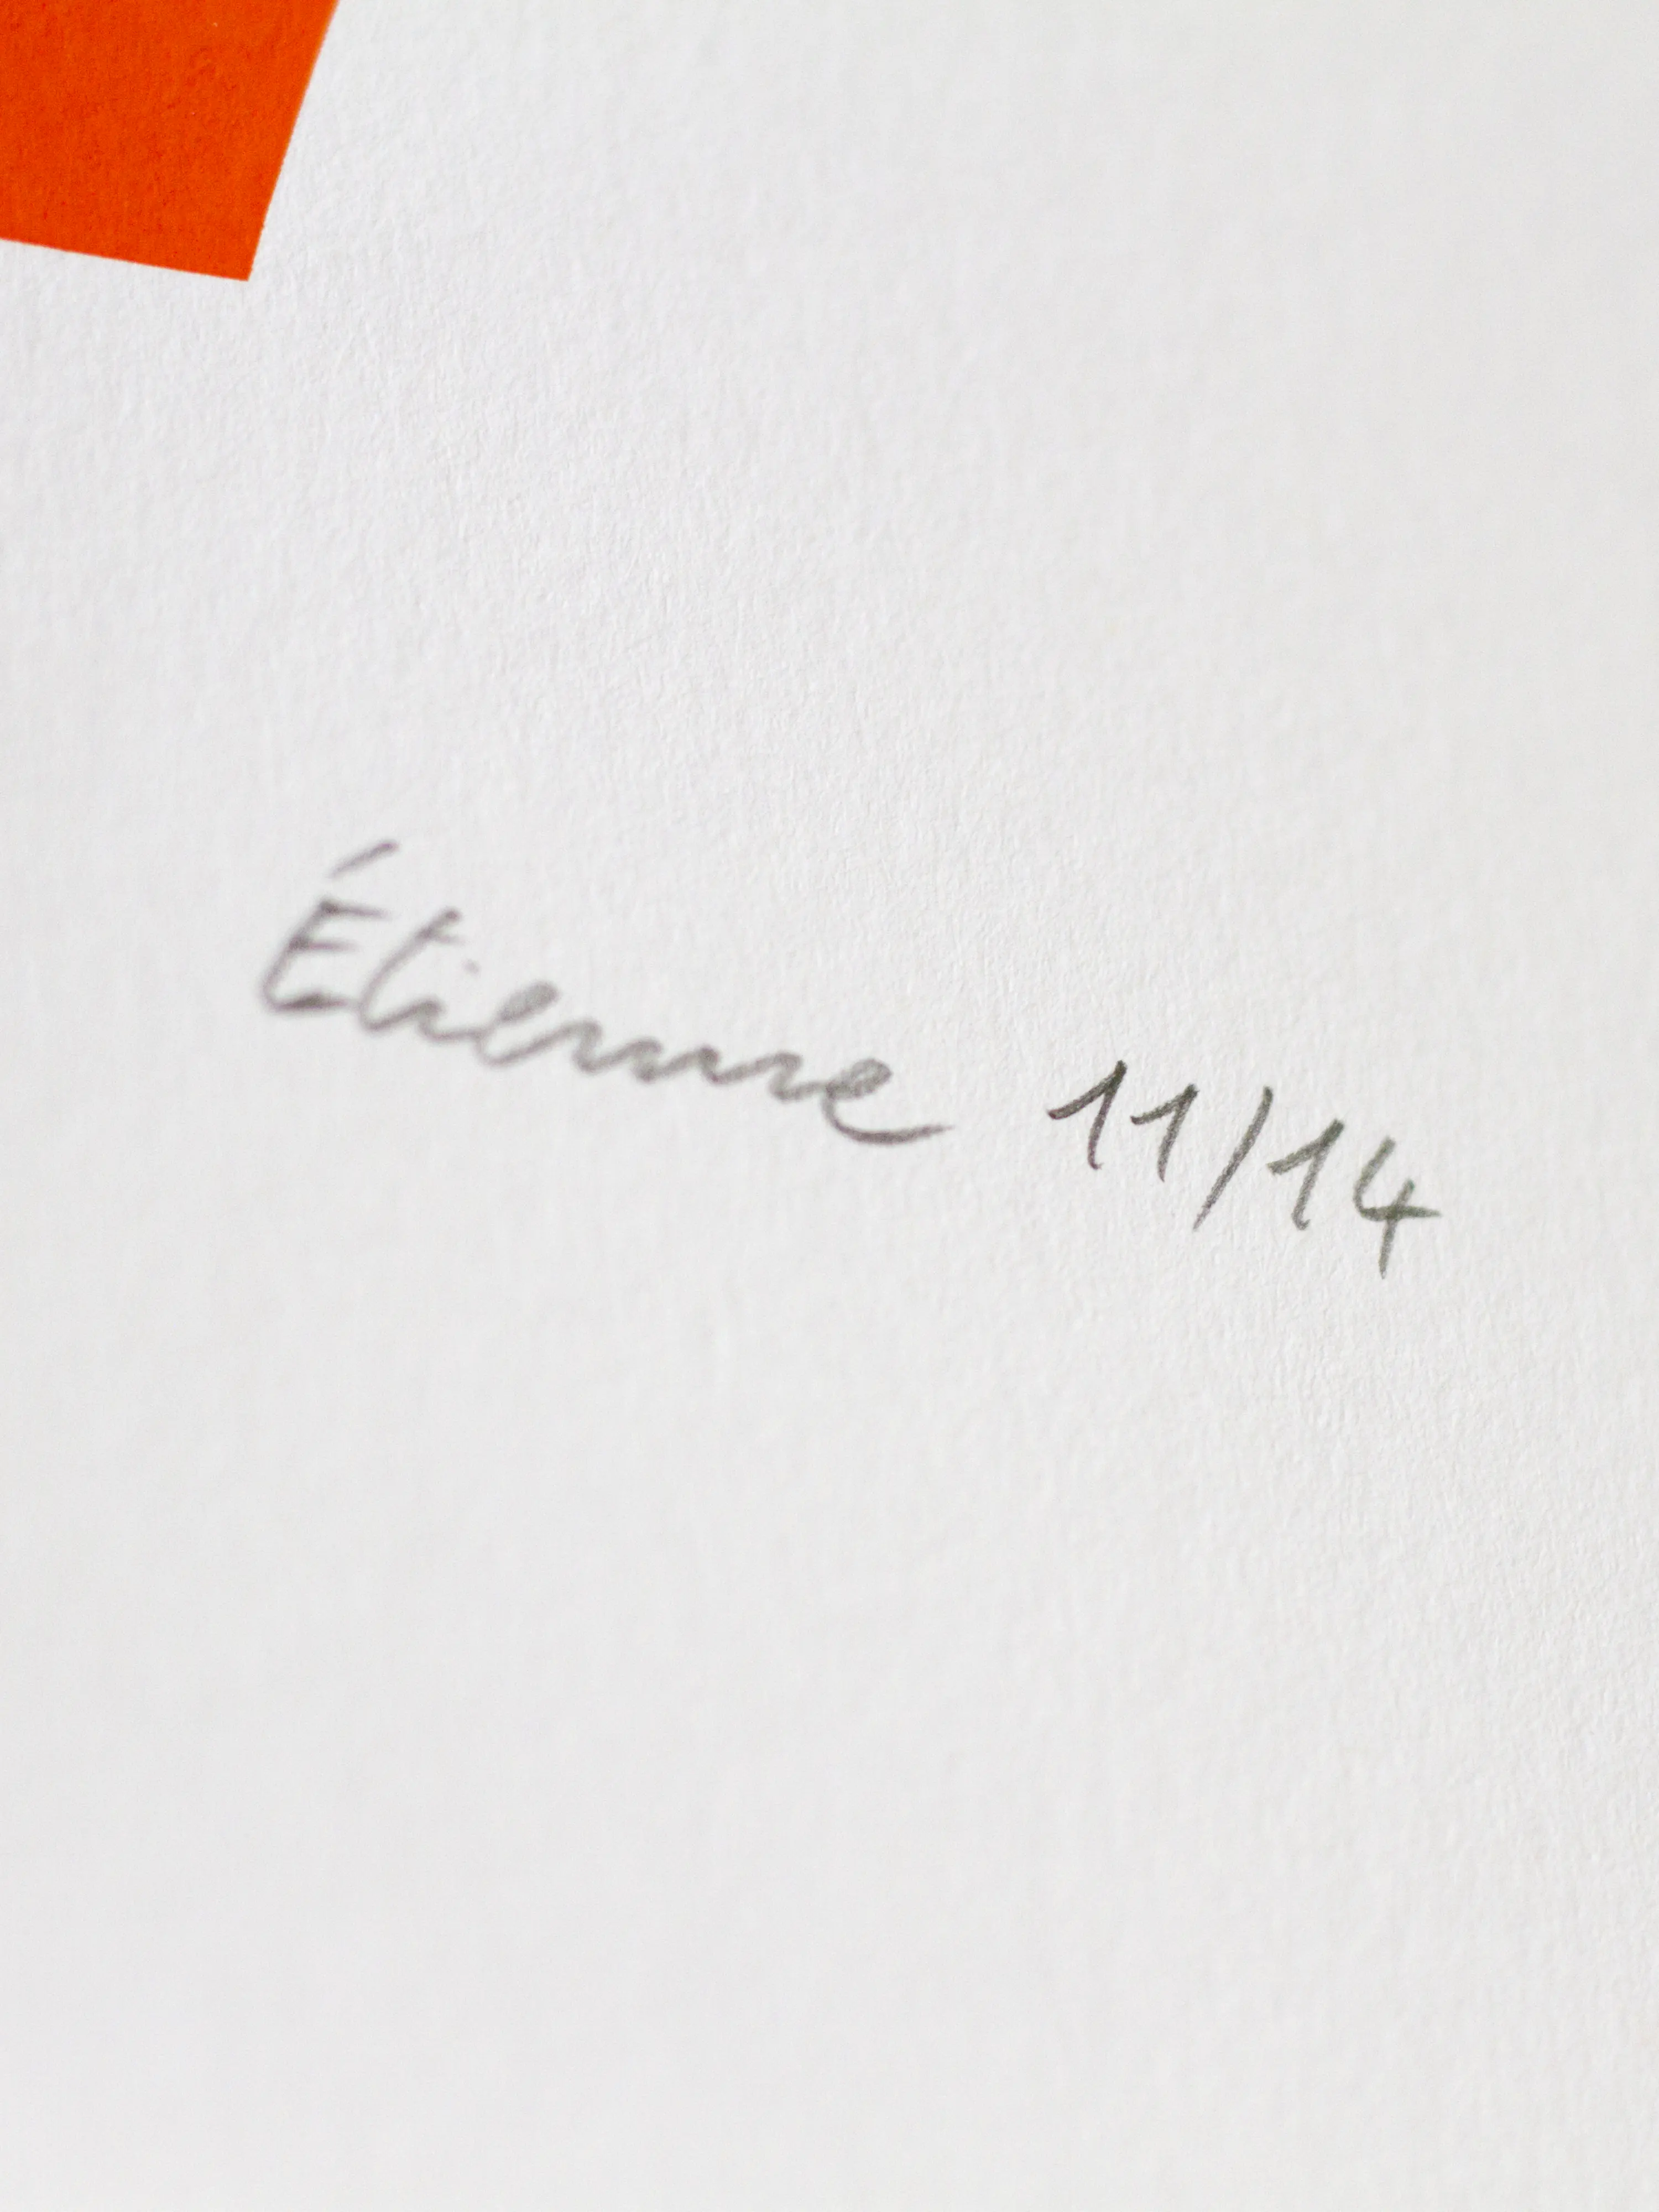 Étienne 11/14